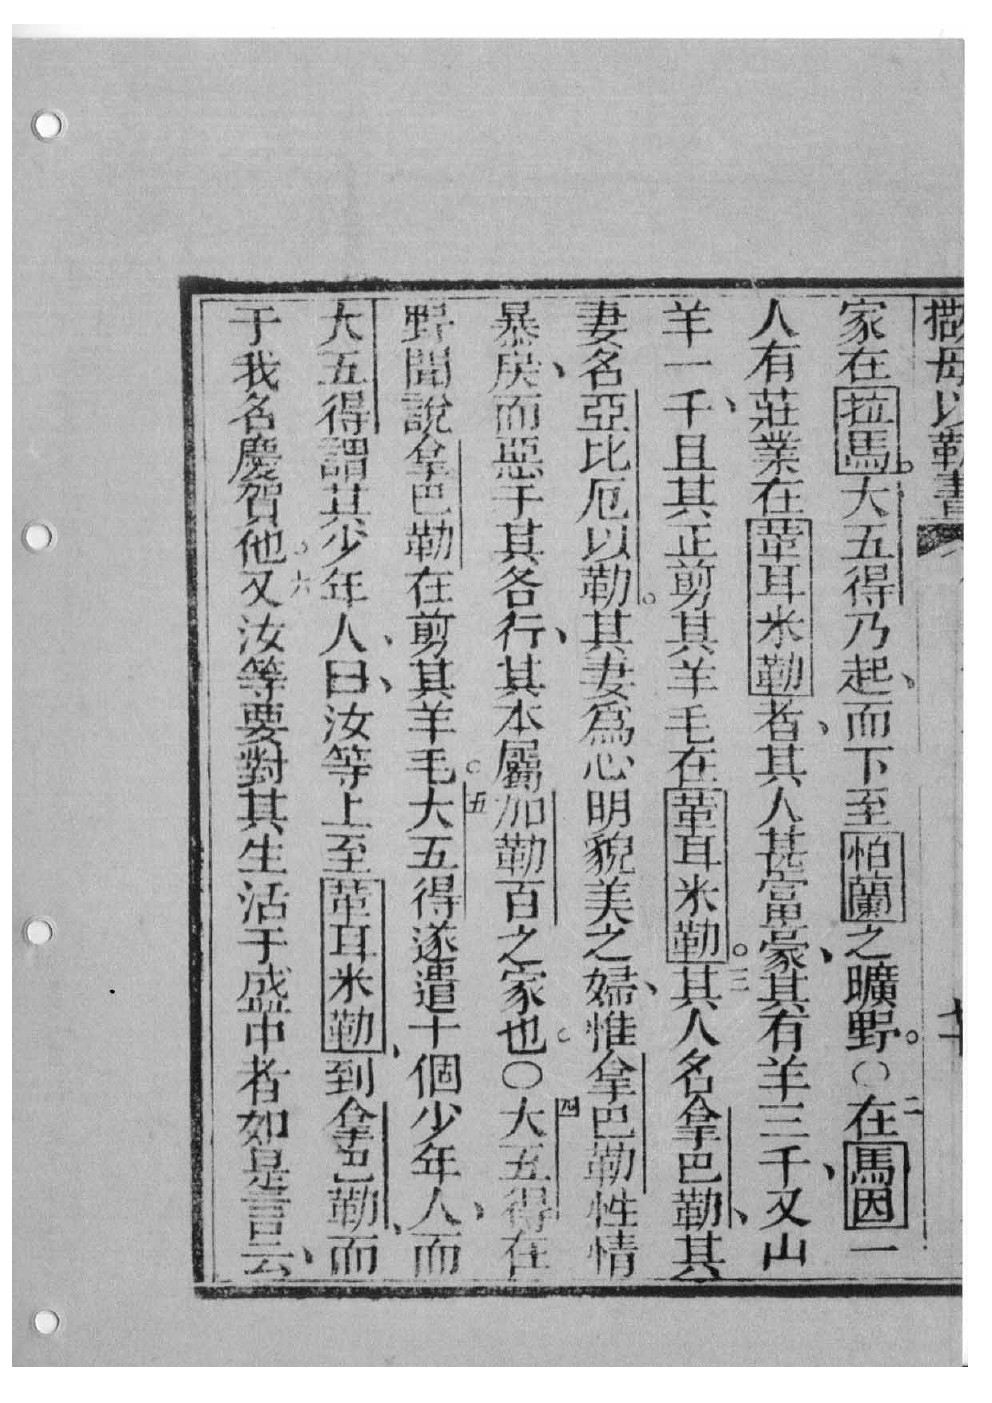 撒母以勒書
家在拉馬。大五得乃起、而下至怕蘭之曠野。〇二在馬因一
人有莊業在葷耳米勒者、其人甚富豪、其有羊三千、又山
羊一千、且其正剪其羊毛在葷耳米勒。三其人名拿巴勒、其
妻名亞比厄以勒。其妻為心明貌美之婦、惟拿巴勒性情
暴戾、而惡于其各行、其本屬加勒百之家也。〇四大五得在
野聞說拿巴勒在剪其羊毛。五大五得遂遣十個少年人、而
大五得謂其少年人、曰、汝等上至葷耳米勒、到拿巴勒、而
于我名慶賀他。六又汝等要對其生活于盛中者如是言云、